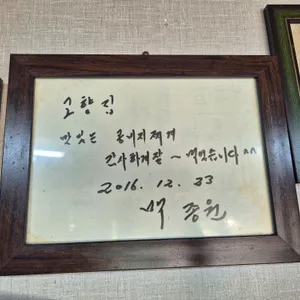 고향집
맛있는 콩비지찌개
감사하게 잘~ 먹었습니다 ^^
2016. 12. 23
백종원